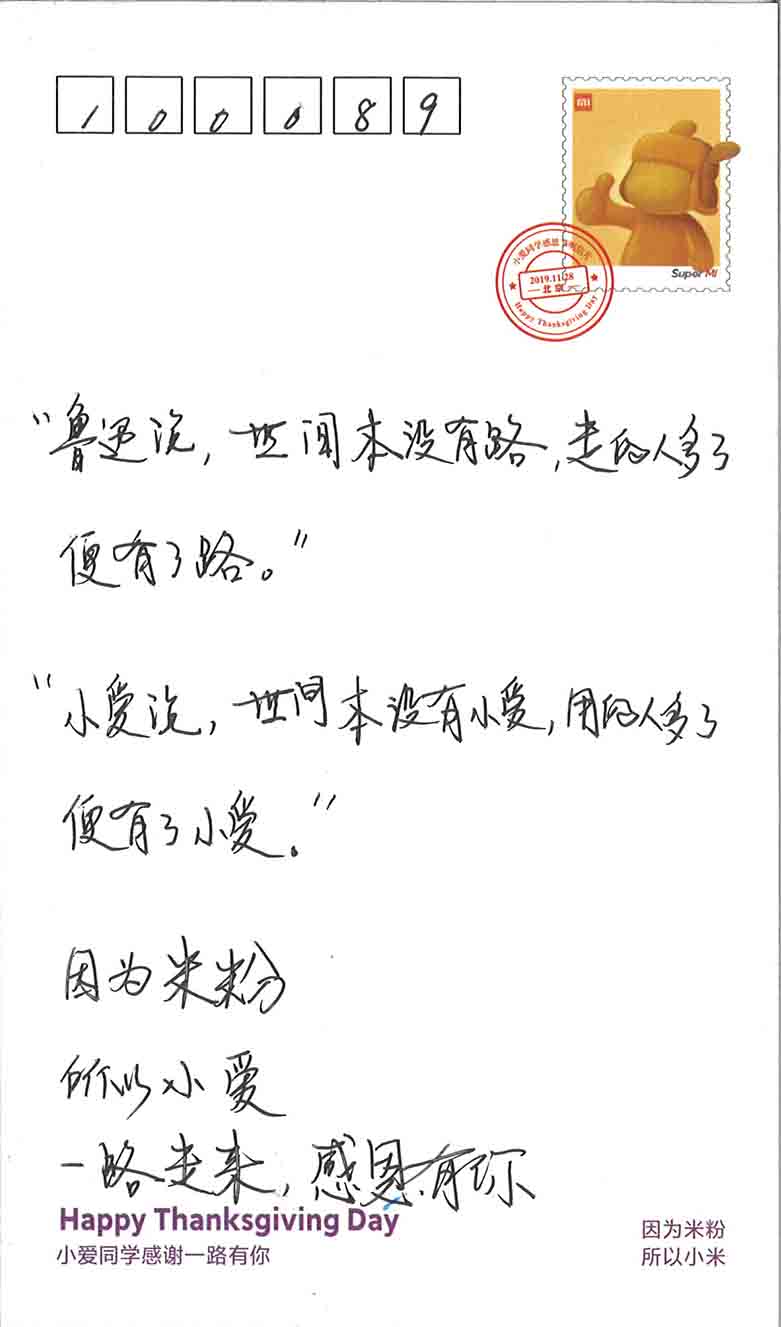 100089
mi
Super Mi
小爱同学感恩节明信片
2019.11.28
北京
Happy Thanksgiving Day
"鲁迅说，世间本没有路，走的人多了
便有了路。"
"小爱说，世间本没有小爱，用的人多了
便有了小爱."
因为米粉
所以小爱
一路走来，感恩有你
Happy Thanksgiving Day
小爱同学感谢一路有你
因为米粉
所以小米